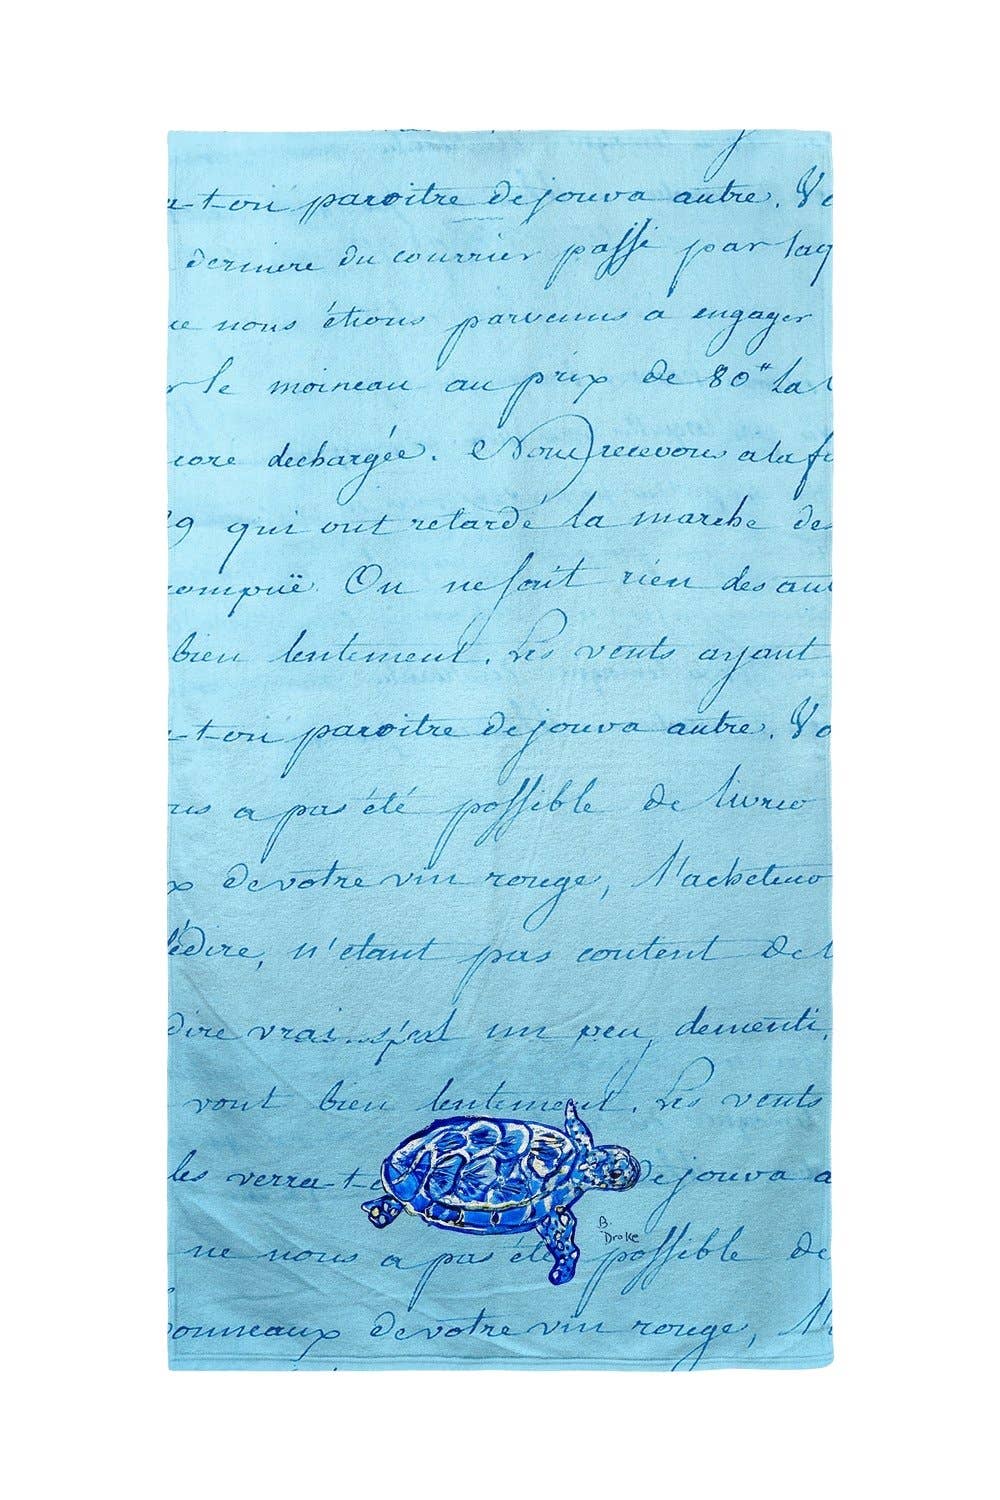 -t-on paroitre dejouva autre. Vo
derniere du courrier passé par laq
ce nous étions parvenus a engager
r le moineau au prix de 80" La
core dechargée. Nous recevons a la fi
29 qui ont retardé la marche des
rompuë. On ne fait rien des au
bien lentement. Les vents ayant
-t-on paroitre dejouva autre. Vo
us a pas été possible de livrer
x de votre vin rouge, l'acheteur
dédire, n'étant pas content de l
dire vrai s'est un peu dementi.
vont bien lentement. Les vents
les verra-t-o dejouva a
ne nous a pas été possible de
B.
Drake
onneaux de votre vin rouge, l'